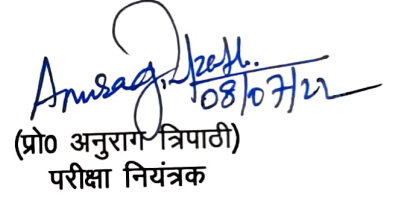 Anurag Tripathi.
08/07/22
(प्रो0 अनुराग त्रिपाठी)
परीक्षा नियंत्रक